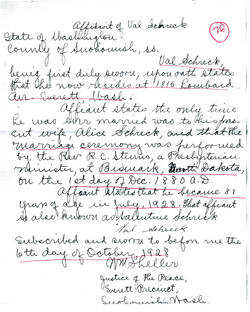 Affidavit of Val Schreck
76
State of Washington
County of Snohomish, ss.
Val Schreck,
being first duly sworn, upon oath states
that he now resides at 1816 Lombard
Ave. Everett Wash.
Affiant states the only time
he was ever married was to his present
wife, Alice Schreck, and that the
marriage ceremony was performed
by the Rev. R.C. Stevens, a Presbyterian
minister, at Bismarck, North Dakota,
on the 1st day of Dec. 1880 A.D.
Affiant states that he became 81
years of age in July, 1928. That affiant
is also known as Valentine Schreck
Val Schreck
Subscribed and sworn to before me the
6th day of October, 1928
Sheller
Justice of the Peace,
Everett Precinct,
Snohomish Wash.